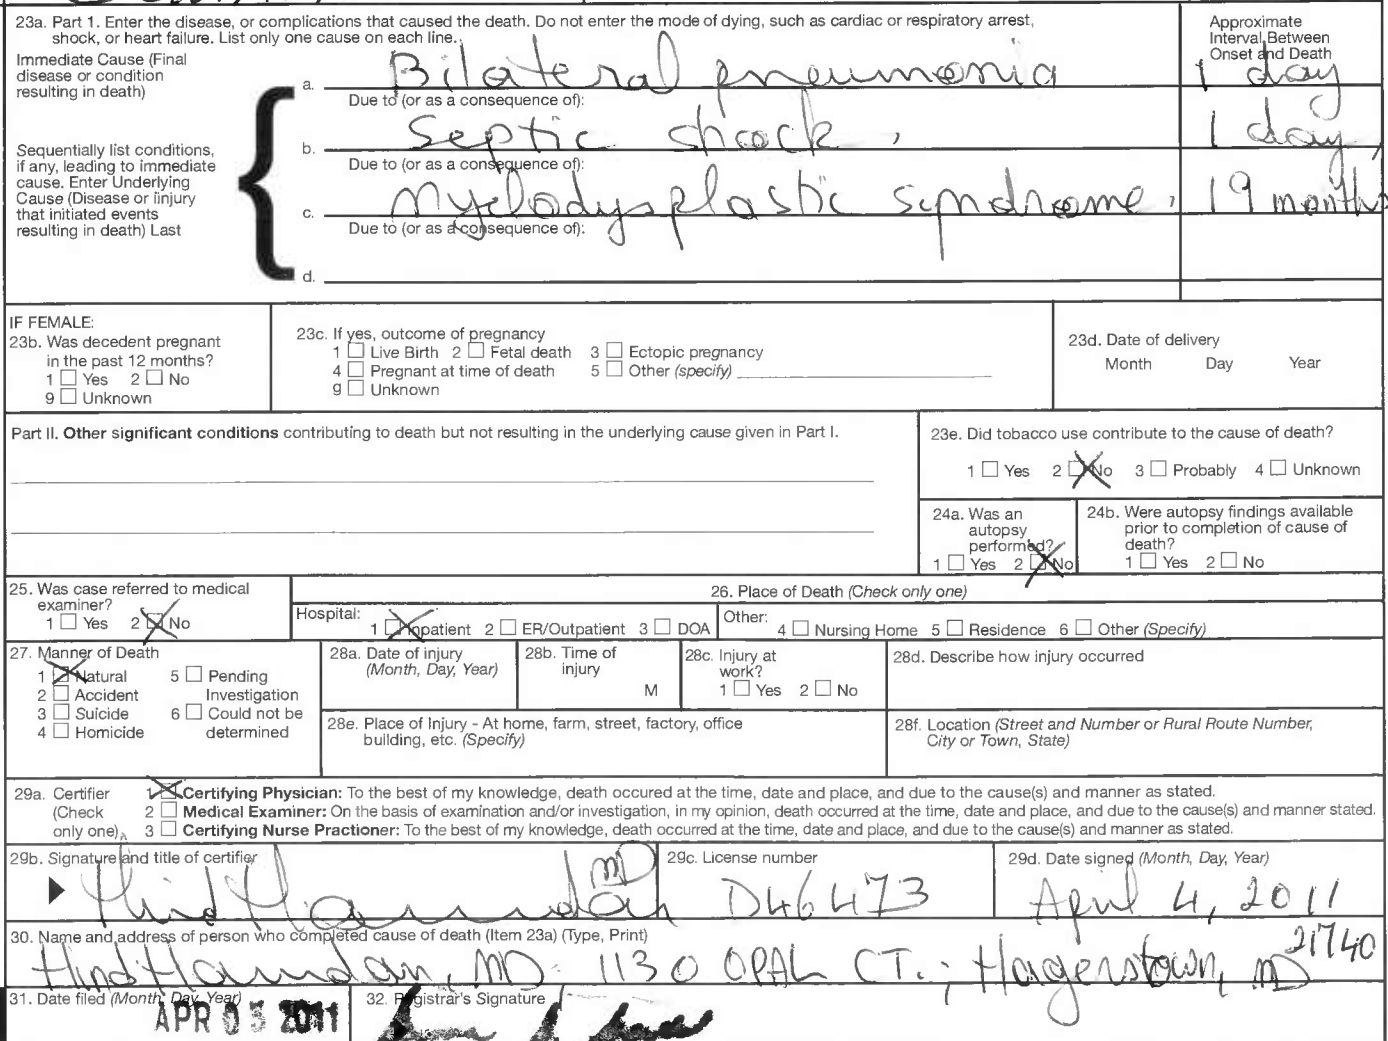 23a. Part 1. Enter the disease, or complications that caused the death. Do not enter the mode of dying, such as cardiac or respiratory arrest,
shock, or heart failure. List only one cause on each line.
Approximate
Interval Between
Onset and Death
Immediate Cause (Final
disease or condition
resulting in death)
a. Bilateral pneumonia 1 day
Due to (or as a consequence of):
b. Septic shock, 1 day,
Due to (or as a consequence of):
Sequentially list conditions,
if any, leading to immediate
cause. Enter Underlying
Cause (Disease or iinjury
that initiated events
resulting in death) Last
c. Myelodysplastic syndrome, 19 months
Due to (or as a consequence of):
d.
IF FEMALE:
23b. Was decedent pregnant
in the past 12 months?
1 Yes 2 No
9 Unknown
23c. If yes, outcome of pregnancy
1 Live Birth 2 Fetal death 3 Ectopic pregnancy
4 Pregnant at time of death 5 Other (specify)
9 Unknown
23d. Date of delivery
Month Day Year
Part II. Other significant conditions contributing to death but not resulting in the underlying cause given in Part I.
23e. Did tobacco use contribute to the cause of death?
1 Yes 2 No 3 Probably 4 Unknown
24a. Was an
autopsy
performed?
1 Yes 2 No
24b. Were autopsy findings available
prior to completion of cause of
death?
1 Yes 2 No
25. Was case referred to medical
examiner?
1 Yes 2 No
26. Place of Death (Check only one)
Hospital: 1 Inpatient 2 ER/Outpatient 3 DOA
Other: 4 Nursing Home 5 Residence 6 Other (Specify)
27. Manner of Death
1 Natural 5 Pending
2 Accident Investigation
3 Suicide 6 Could not be
4 Homicide determined
28a. Date of injury
(Month, Day, Year)
28b. Time of
injury
M
28c. Injury at
work?
1 Yes 2 No
28d. Describe how injury occurred
28e. Place of Injury - At home, farm, street, factory, office
building, etc. (Specify)
28f. Location (Street and Number or Rural Route Number,
City or Town, State)
29a. Certifier
(Check
only one)
1 Certifying Physician: To the best of my knowledge, death occured at the time, date and place, and due to the cause(s) and manner as stated.
2 Medical Examiner: On the basis of examination and/or investigation, in my opinion, death occurred at the time, date and place, and due to the cause(s) and manner stated.
3 Certifying Nurse Practioner: To the best of my knowledge, death occurred at the time, date and place, and due to the cause(s) and manner as stated.
29b. Signature and title of certifier
Hind Hamdan MD
29c. License number
D46473
29d. Date signed (Month, Day, Year)
April 4, 2011
30. Name and address of person who completed cause of death (Item 23a) (Type, Print)
Hind Hamdan, MD. 1130 OPAL CT., Hagerstown, MD 21740
31. Date filed (Month, Day, Year)
APR 05 2011
32. Registrar's Signature